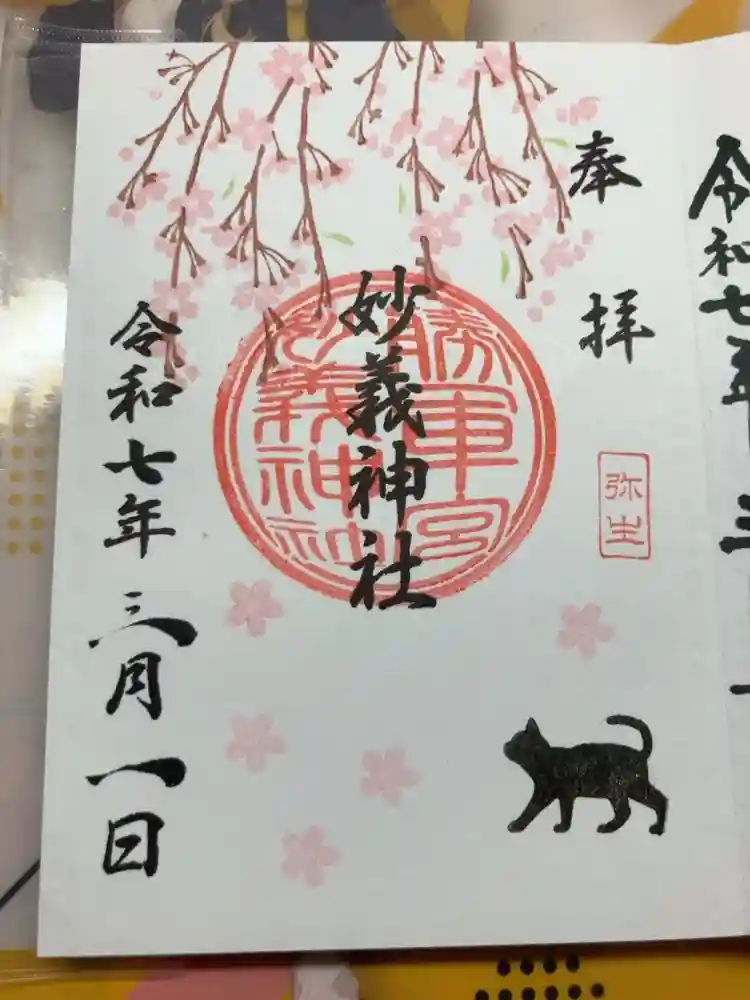 奉拝
弥生
勝軍宮
妙義神社
妙義神社
令和七年三月一日
令和七年三